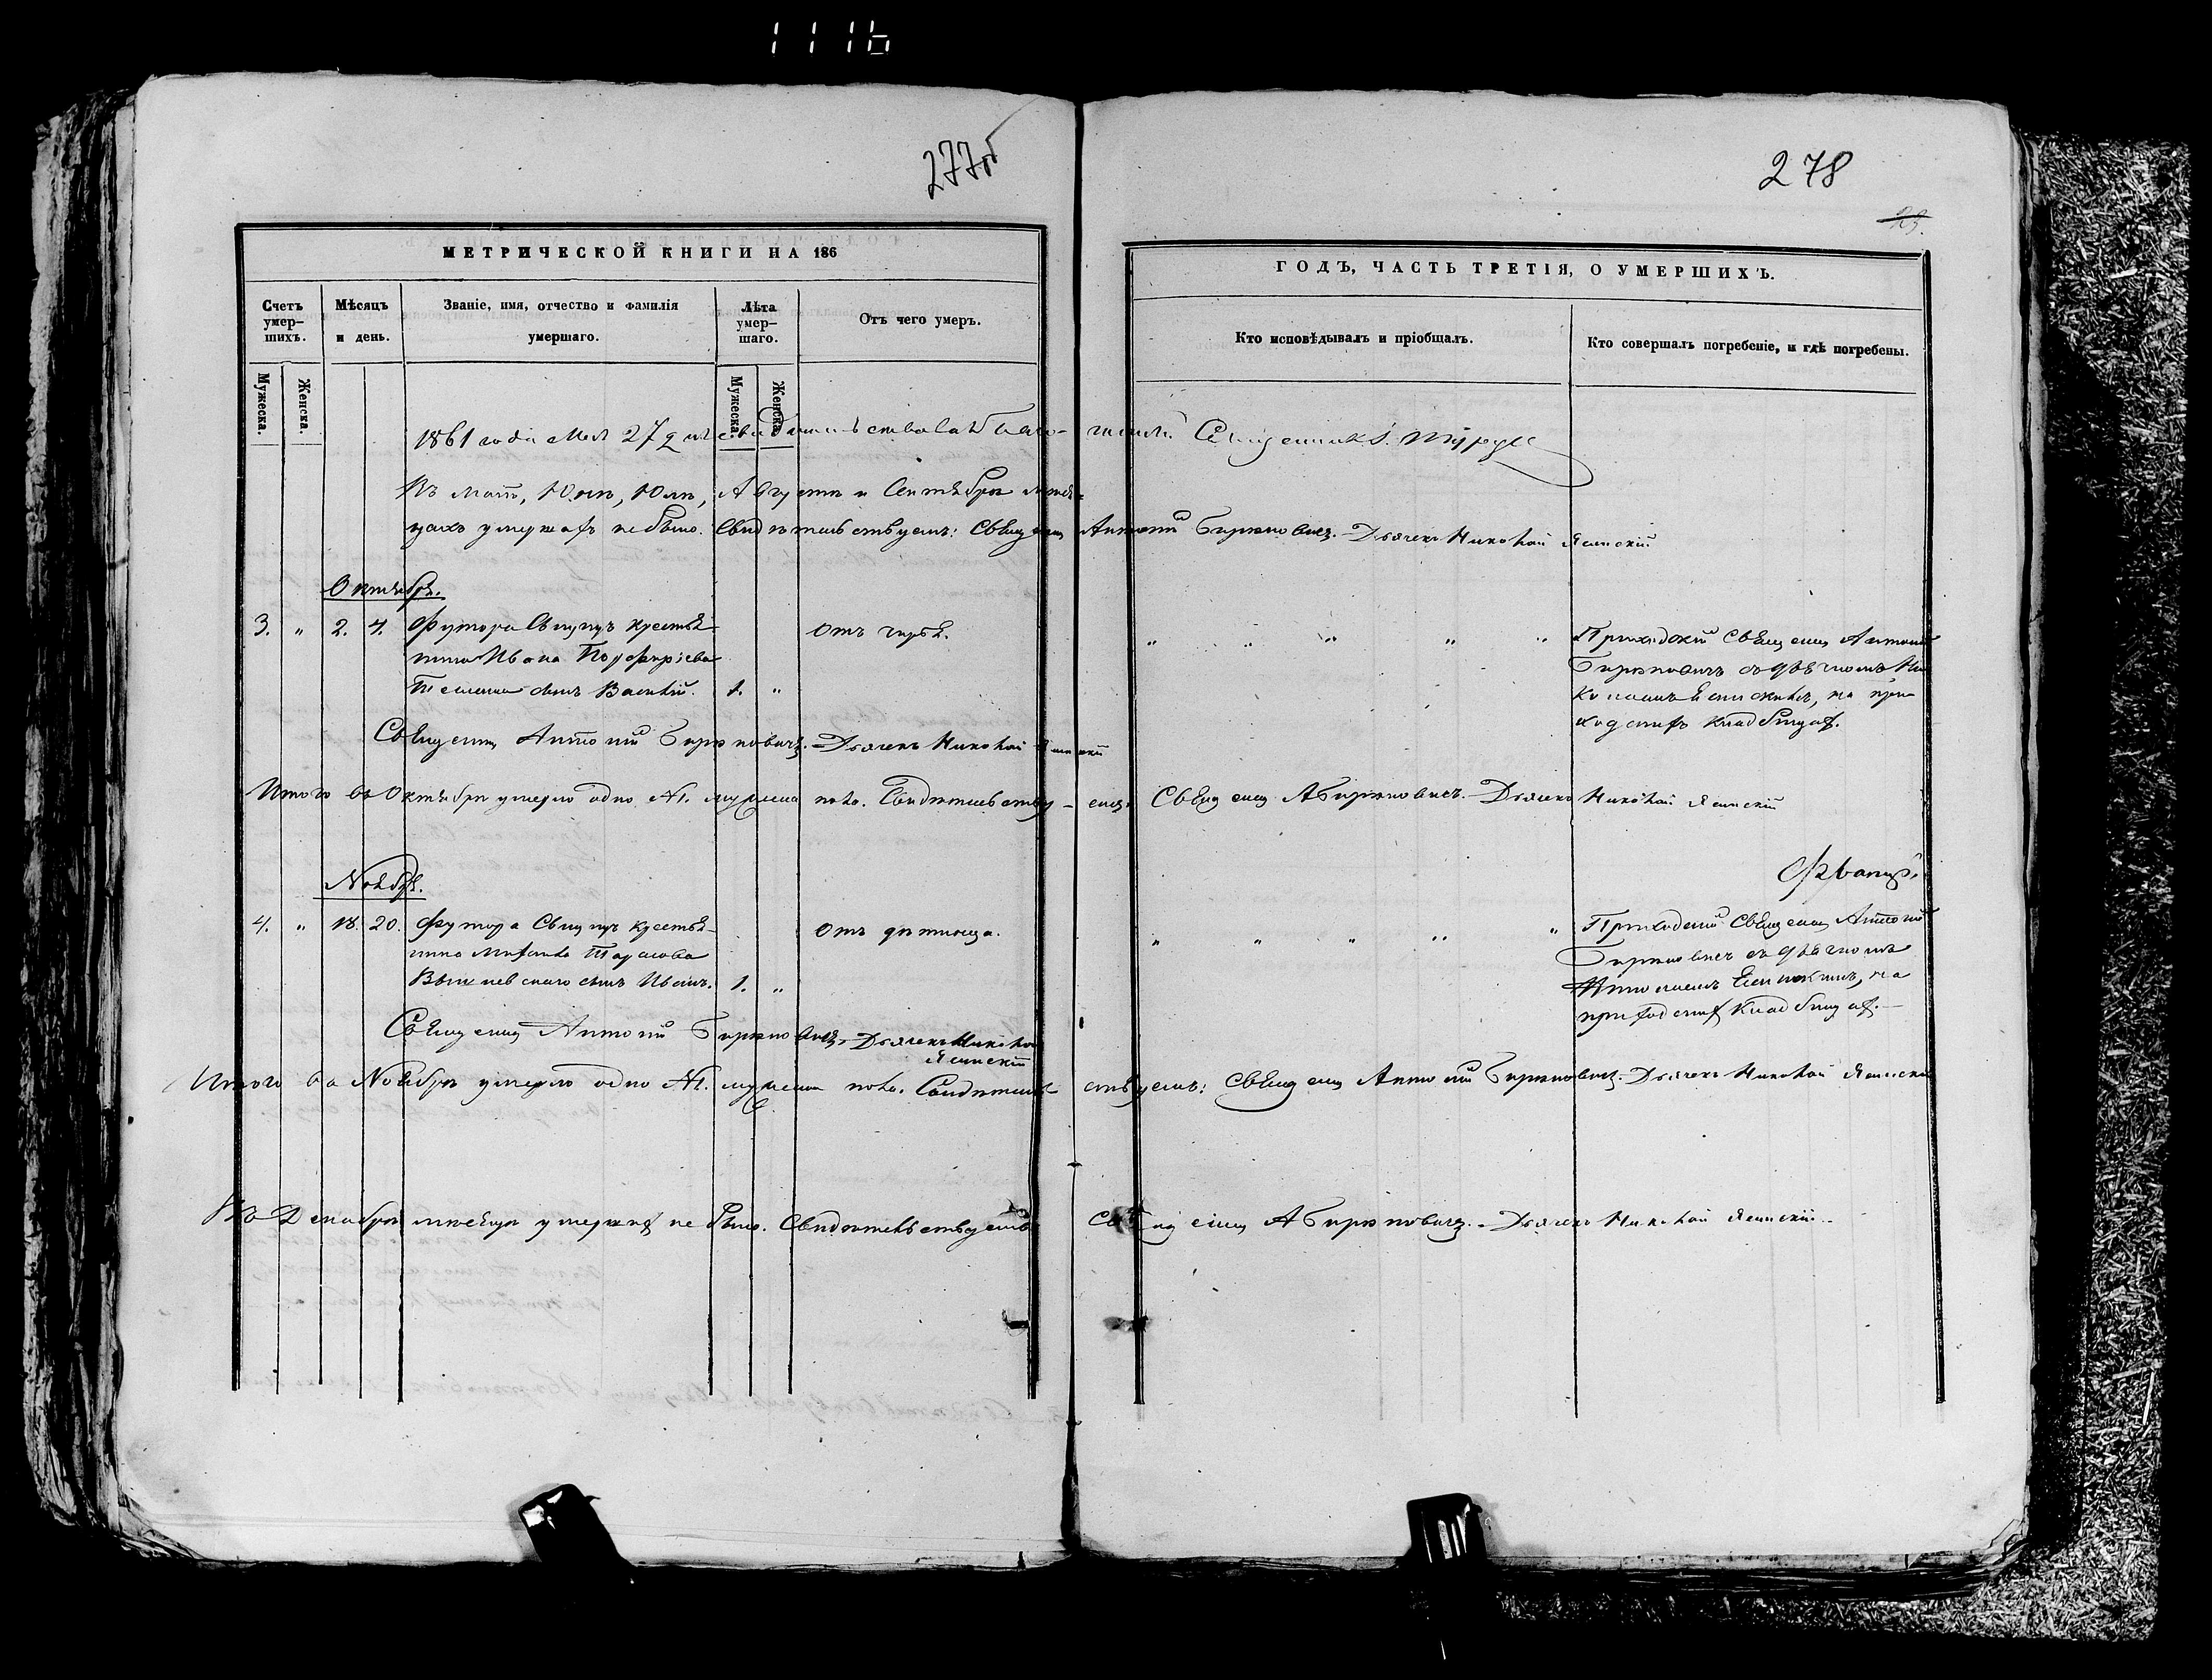 1116
277об
278
29.
МЕТРИЧЕСКОЙ КНИГИ НА 186
ГОДЪ, ЧАСТЬ ТРЕТІЯ, О УМЕРШИХЪ.
Счетъ умер-шихъ.
Мѣсяцъ и день.
Званіе, имя, отчество и фамилія умершаго.
Лѣта умер-шаго.
Отъ чего умеръ.
Кто исповѣдывалъ и пріобщалъ.
Кто совершалъ погребеніе, и гдѣ погребены.
Мужеска.
Женска.
Мужеска.
Женска.
1861 года Мая 27 дня свидѣтельствовалъ Священникъ
Въ маѣ, Юнѣ, Юлѣ, Августѣ и Сентябрѣ мѣся-
цахъ умершихъ не было. Свидѣтельствуемъ: Священ. Антоній Бирюковичъ. Дьячекъ Николай Ясинскій
Октябрь.
3. „ 2. 4. Футора крестья-
нина Ивана Порфиріева
сынъ Василій. 1. „
Отъ
„ „ „ „ „
Приходскій Священ. Антоній
Бирюковичъ съ дьячкомъ Ни-
колаемъ Ясинскимъ, на при-
ходскихъ кладбищахъ.
Священ. Антоній Бирюковичъ. Дьячекъ Николай Ясинскій
Итого въ Октябрѣ умерло одно №1. мужеска пола. Свидѣтельству-емъ: Священ. А Бирюковичъ. Дьячекъ Николай Ясинскій
Ноябрь.
4. „ 18. 20. Футора крестья-
нина Михаила Тарасова
Вышневскаго сынъ Иванъ. 1. „
Отъ
„ „ „ „ „
Приходскій Священ. Антоній
Бирюковичъ съ дьячкомъ
Николаемъ Ясинскимъ, на
приходскихъ кладбищахъ.
Священ. Антоній Бирюковичъ. Дьячекъ Николай
Ясинскій
Итого въ Ноябрѣ умерло одно №1. мужеска пола. Свидѣтель-ствуемъ: Священ. Антоній Бирюковичъ. Дьячекъ Николай Ясинскій
Въ Декабрѣ мѣсяцѣ умершихъ не было. Свидѣтельствуемъ Священ. А Бирюковичъ. Дьячекъ Николай Ясинскій